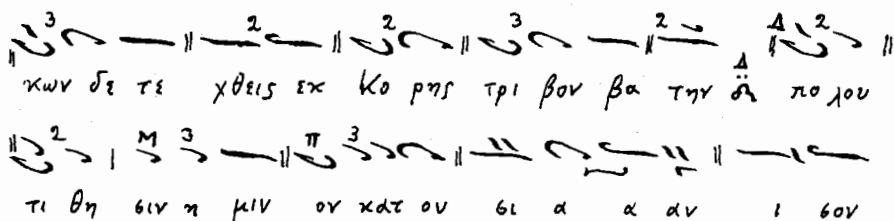 κων δε τε χθεις εκ Κο ρης τρι βον βα την πο λου
τι θη σιν η μιν ον κατ ου σι α α αν ι σον